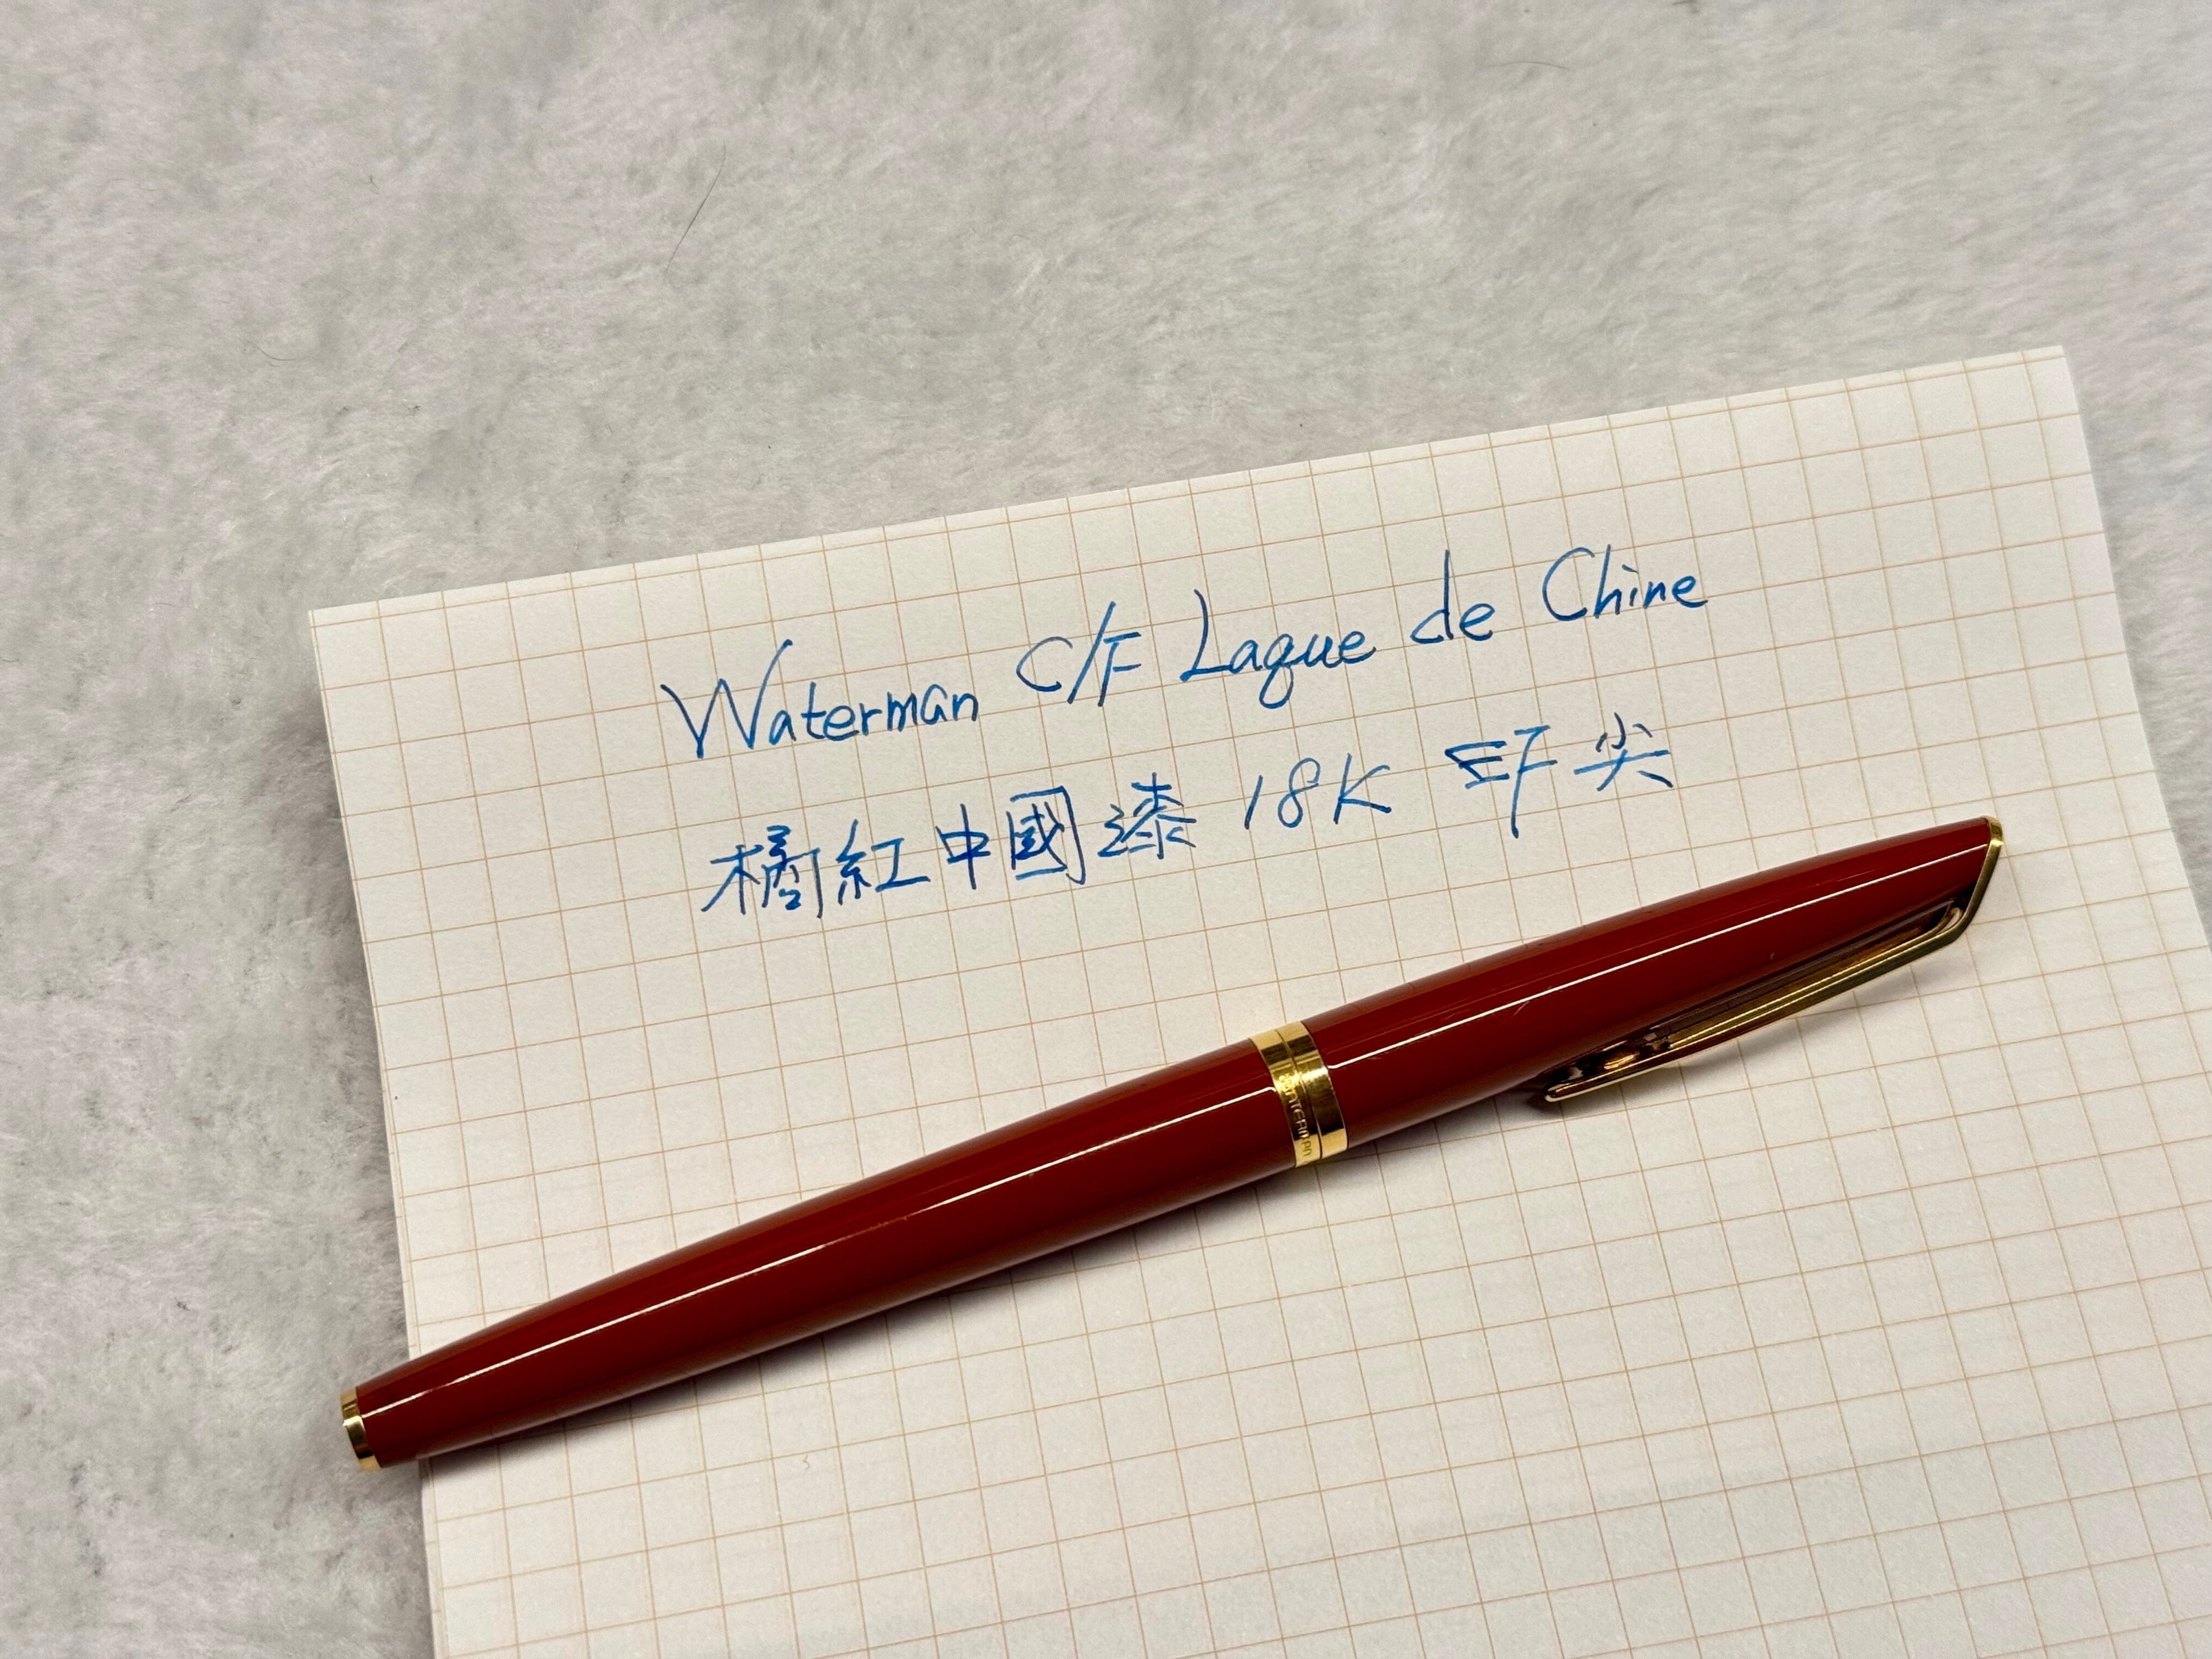 Waterman C/F Laque de Chine
橘紅中國漆 18K EF 尖
WATERMAN